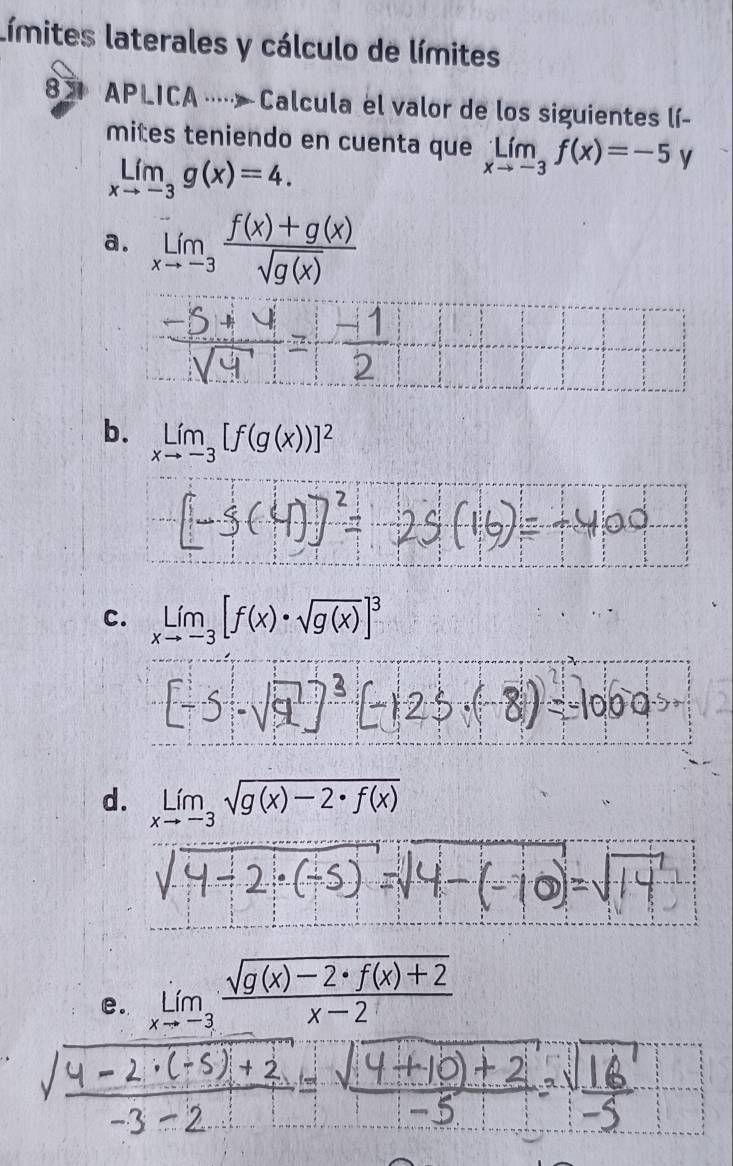 Límites laterales y cálculo de límites
8 APLICA ·····➤ Calcula el valor de los siguientes lí-
mites teniendo en cuenta que Lím x→−3 f(x)=−5 y
Lím x→−3 g(x)=4.
a. Lím x→−3 (f(x)+g(x))/√g(x)
(-5+4)/√4 = -1/2
b. Lím x→−3 [f(g(x))]²
[-5(4)]² = 25(16) = -400
c. Lím x→−3 [f(x)·√g(x)]³
[-5·√4]³ [-125·(8) = -1000
d. Lím x→−3 √(g(x)−2·f(x))
√(4-2·(-5)) = √(4-(-10)) = √14
e. Lím x→−3 √(g(x)−2·f(x)+2)/(x−2)
√(4-2·(-5)+2)/(-3-2) = √(4+10)+2/(-5) = √16/(-5)